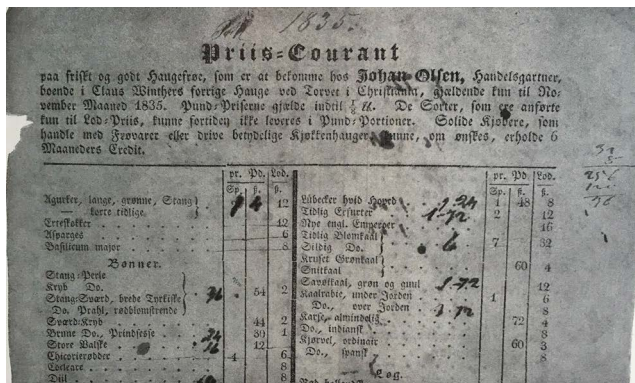 1835.
Priis-Courant
paa friskt og godt Haugefrøe, som er at bekomme hos Johan Olsen, Handelsgartner,
boende i Claus Winthers forrige Hauge ved Torvet i Christiania, gjældende kun til No-
vember Maaned 1835. Pund-Priserne gjælde indtil 1/8 ℔. De Sorter, som ere anførte
kun til Lod-Priis, kunne fortiden ikke leveres i Pund-Portioner. Solide Kjøbere, som
handle med Frøvarer eller drive betydelige Kjøkkenhauger, kunne, om ønskes, erholde 6
Maaneders Credit.
pr. Pd. Lod. pr. Pd. Lod.
Sp. ß. ß. Sp. ß. ß.
Agurker, lange, grønne, Stang 1 4 12
— korte tidlige
Ertestokker 12
Asparges 6
Basilicum major 8
Bønner.
Stang-Perle
Kryb Do.
Stang-Sværd, brede Tyrkiske 36 54 2
Do. Prahl, rødblomstrende
Sværd-Kryb 44 2
Brune Do., Prindsesse 24 30 1
Store Valske 12
Chicorierødder 4 6
Cocleare 8
Dill
Lübecker hvid Hoved 1 48 8
Tidlig Erfurter 1-72 2 12
Nye engl. Emperor 16
Tidlig Blomkaal
Sildig Do. 6 7 32
Kruset Grønkaal
Snitkaal 60 4
Savoikaal, grøn og guul 1-72 12
Kaalrabie, under Jorden 1 6
Do., over Jorden 1 72 8
Karse, almindelig 72 4
Do., indiansk 8
Kjørvel, ordinair 60 3
Do., spansk 8
Løg.